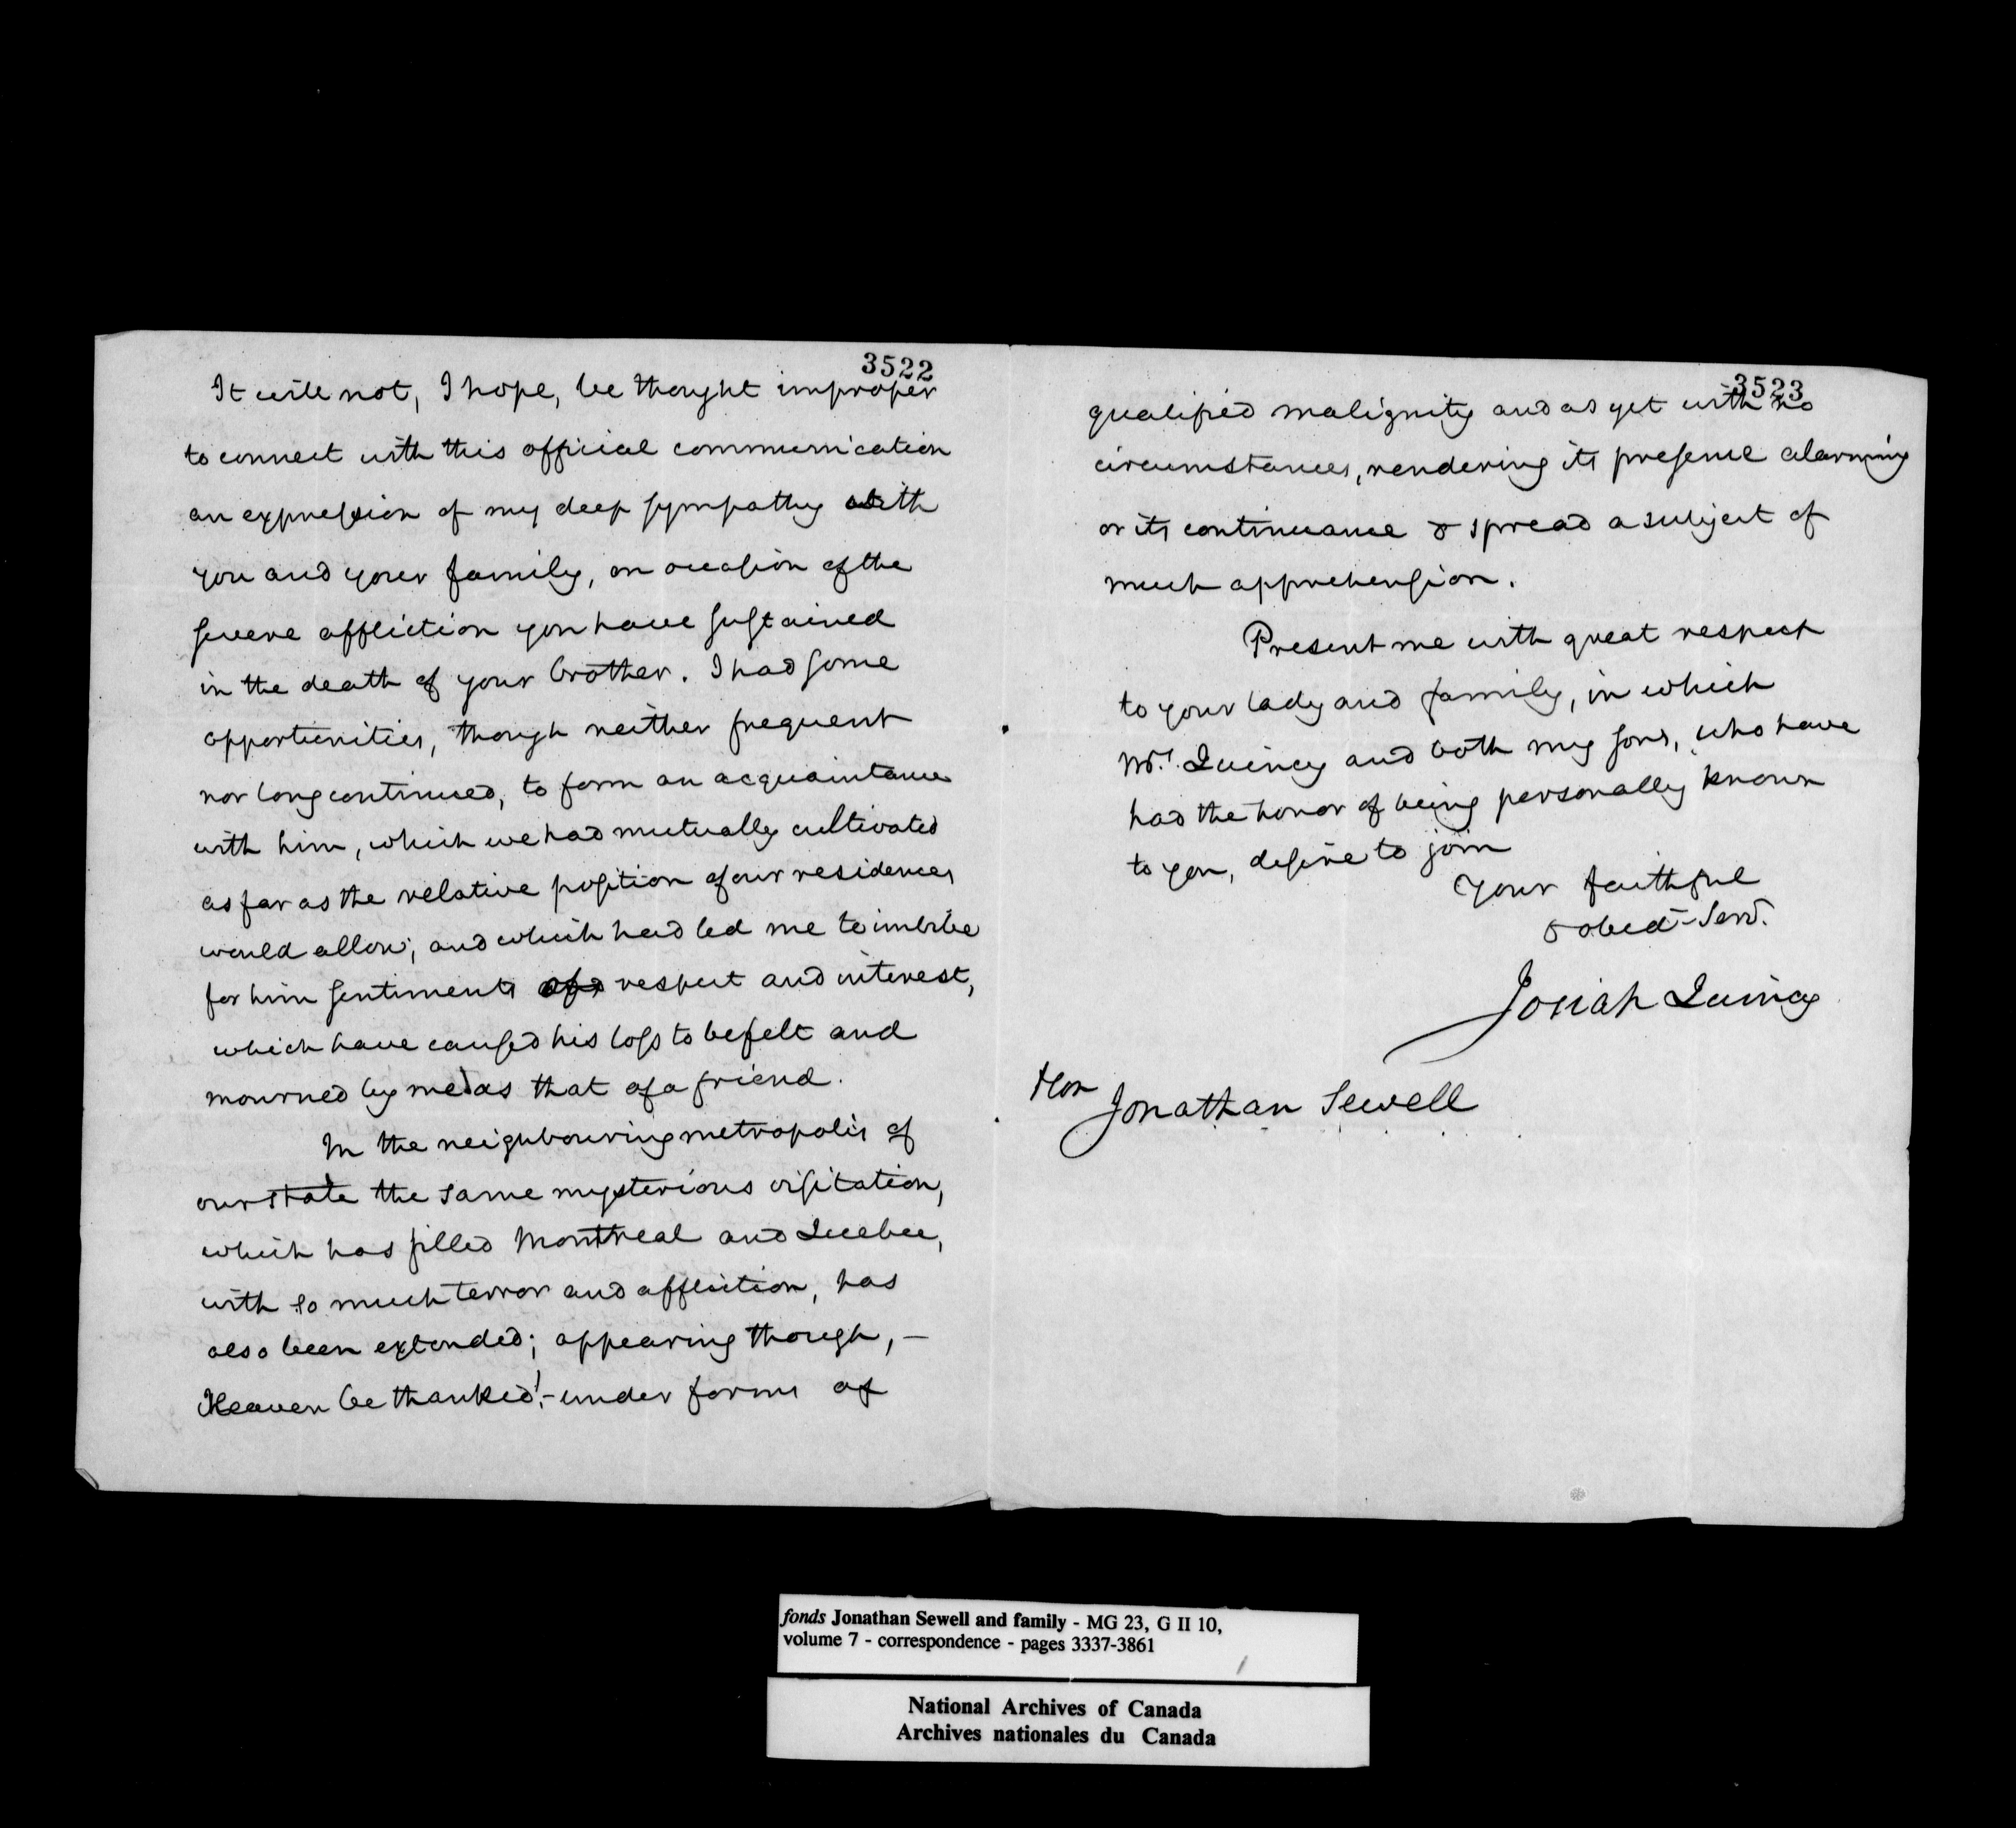 3522
It will not, I hope, be thought improper
to connect with this official communication
an expression of my deep sympathy with
you and your family, on occasion of the
severe affliction you have sustained
in the death of your brother. I had some
opportunities, though neither frequent
nor long continued, to form an acquaintance
with him, which we had mutually cultivated
as far as the relative position of our residences
would allow; and which had led me to imbibe
for him sentiments of respect and interest,
which have caused his loss to be felt and
mourned by me as that of a friend.
In the neighbouring metropolis of
our state the same mysterious visitation,
which has filled Montreal and Quebec,
with so much terror and affliction, has
also been extended; appearing though, —
Heaven be thanked! - under forms of
3523
qualified malignity and as yet with no
circumstances, rendering its presence alarming
or its continuance & spread a subject of
much apprehension.
Present me with great respect
to your lady and family, in which
Mrs. Quincy and both my sons, who have
had the honor of being personally known
to you, desire to join
Your faithful
& obedt Servt.
Josiah Quincy
Hon
Jonathan Sewell
fonds Jonathan Sewell and family - MG 23, G II 10,
volume 7 - correspondence - pages 3337-3861
National Archives of Canada
Archives nationales du Canada